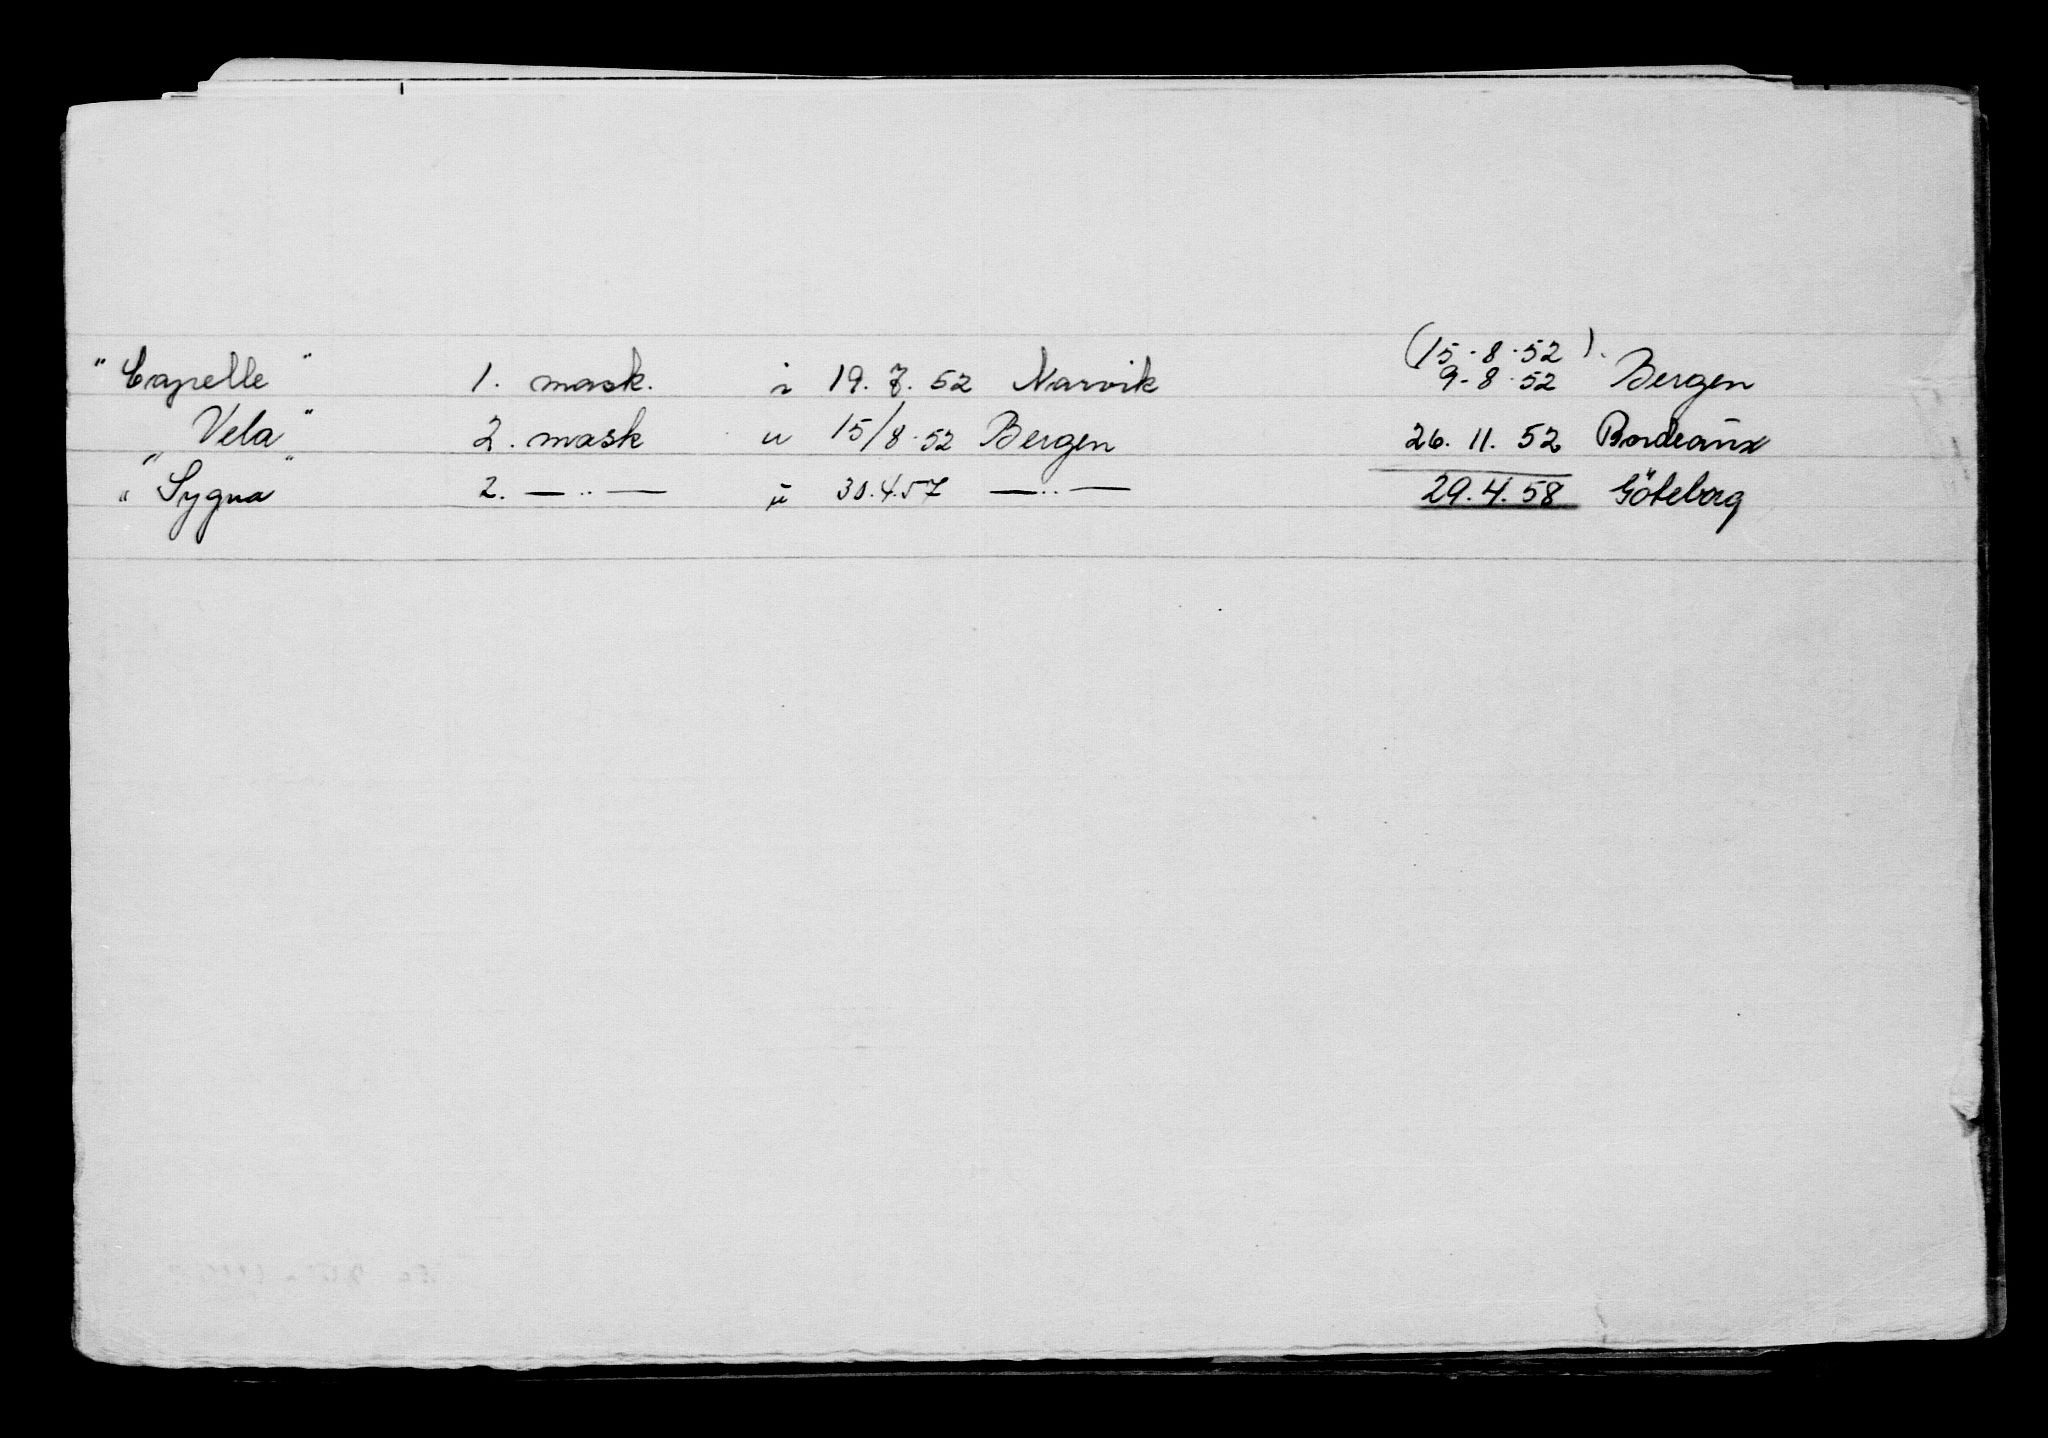 (15.8.52).
"Capelle" 1. mask. i 19.7.52 Narvik 9.8.52 Bergen
"Vela" 2. mask u 15/8.52 Bergen 26.11.52 Bordeaux
"Sygna" 2. —..— u 30.4.57 —..— 29.4.58 Göteborg